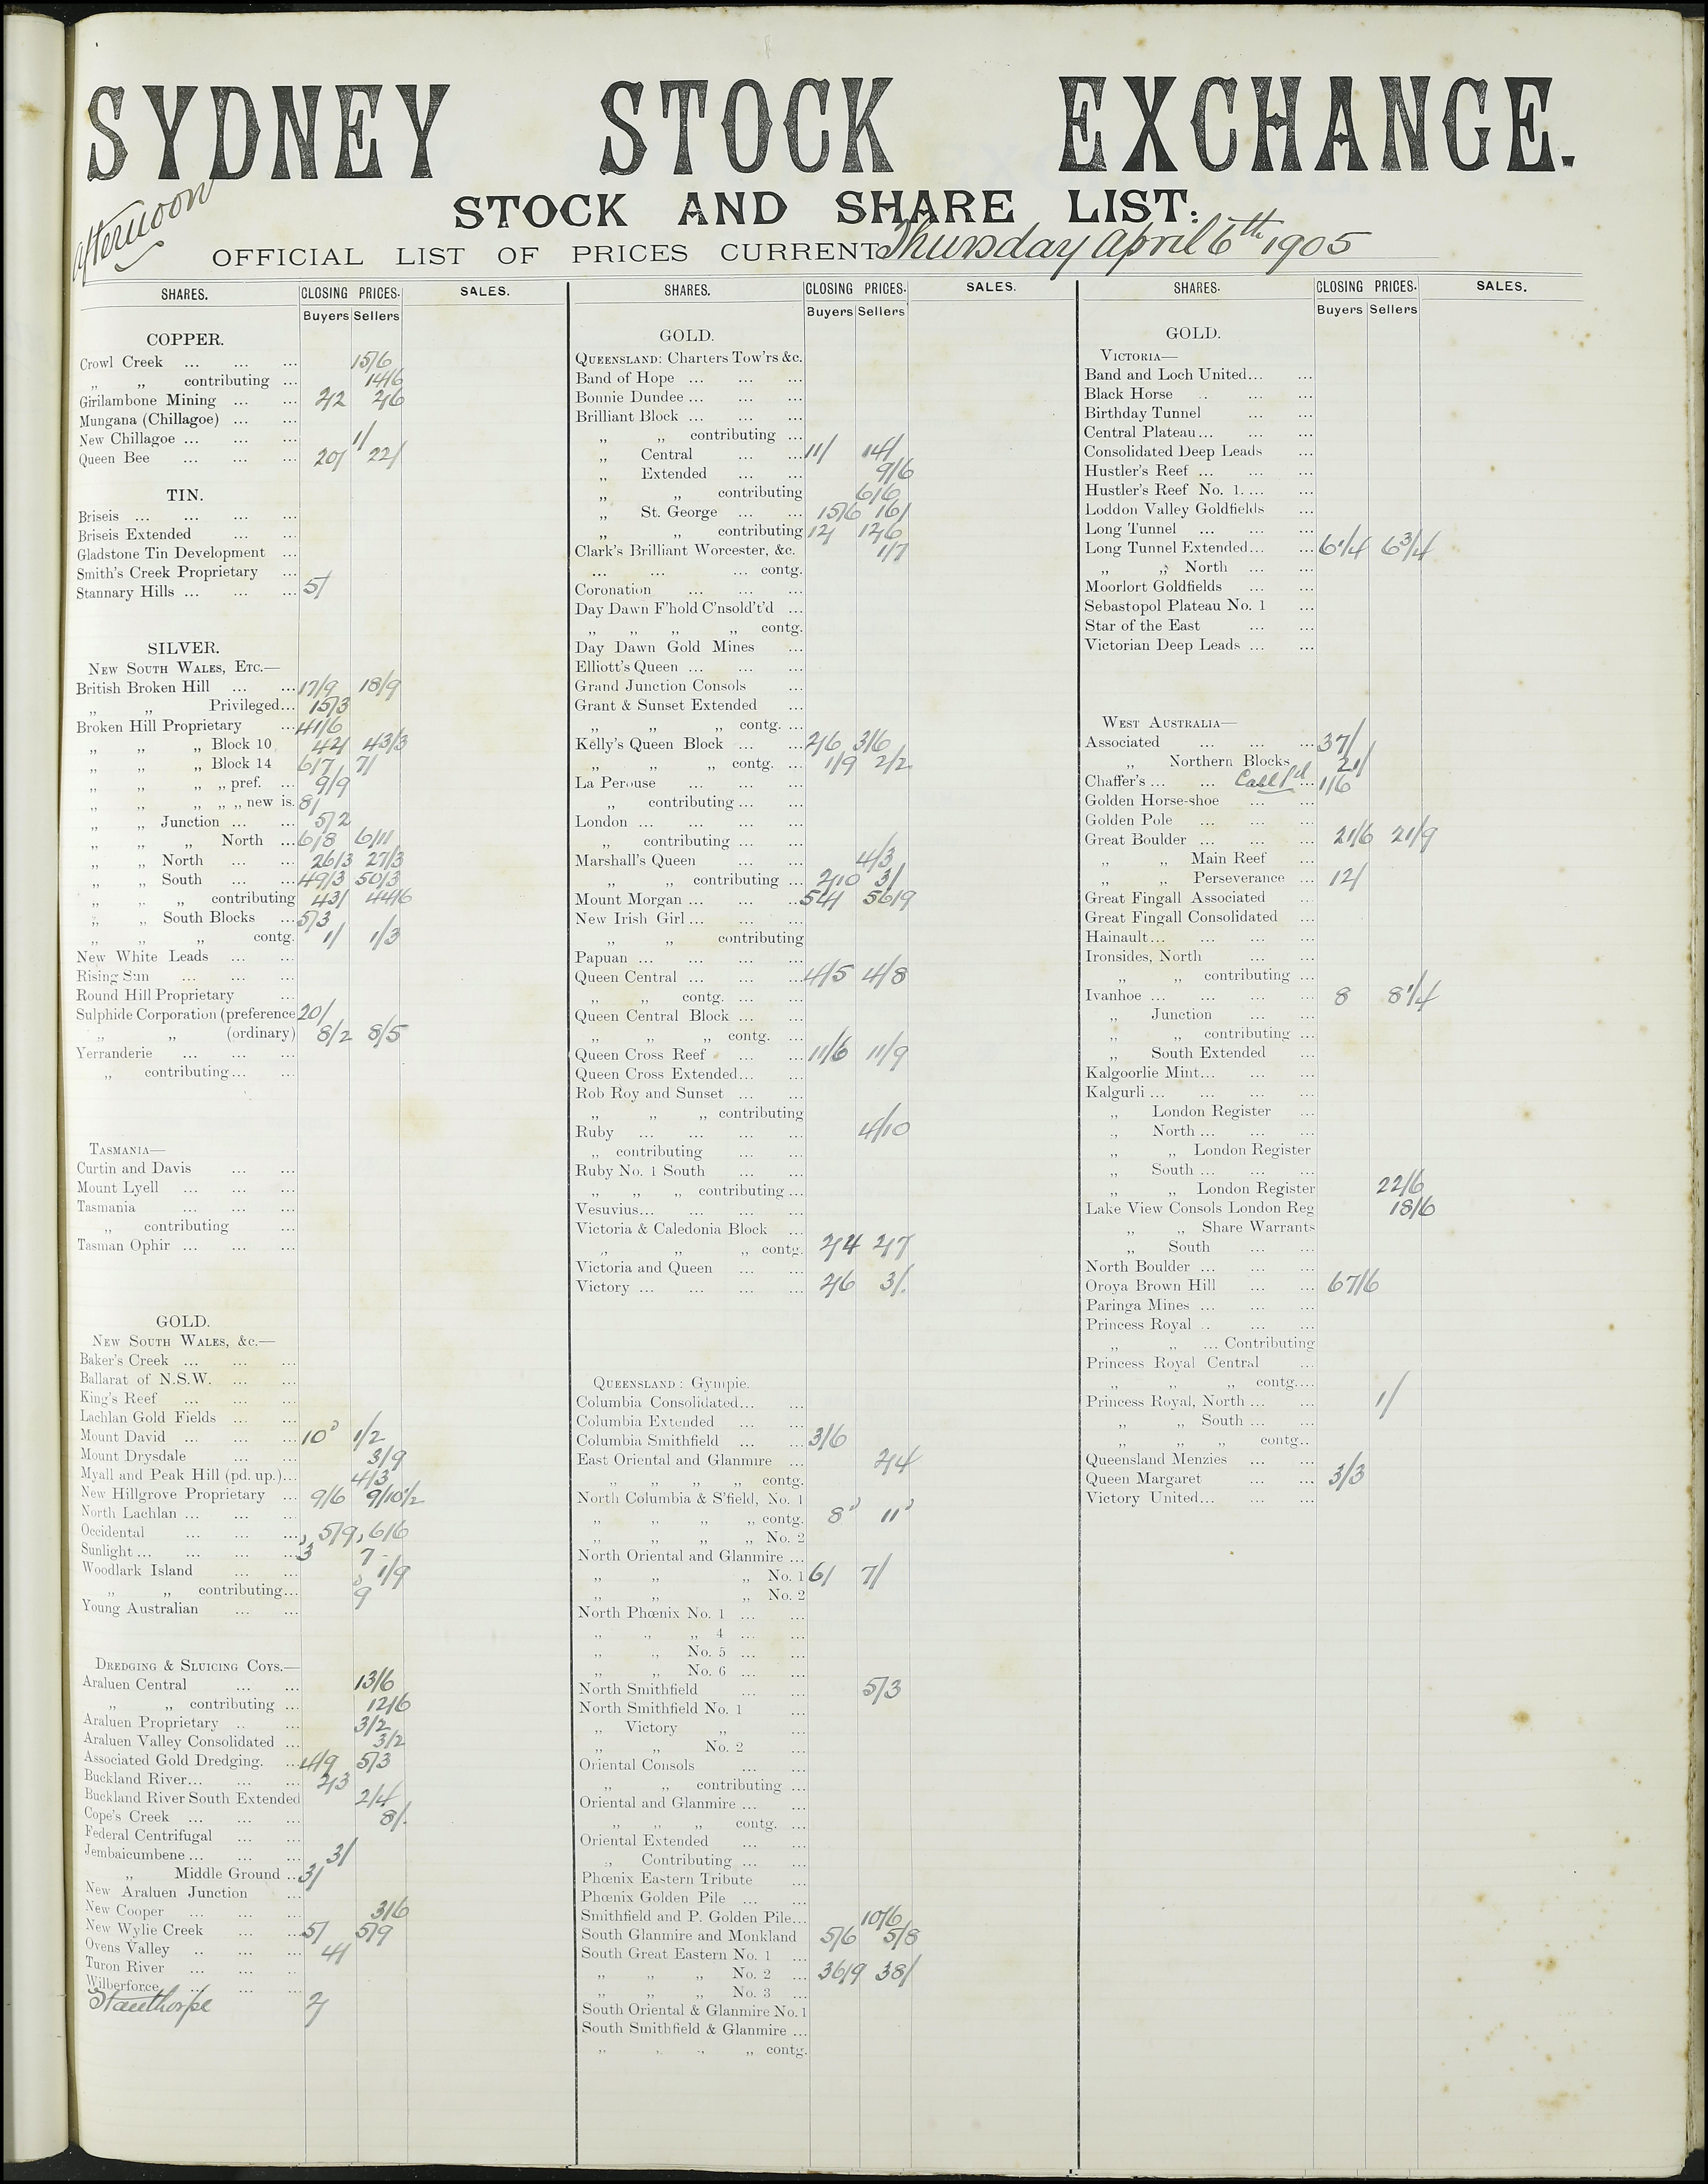 SYDNEY STOCK EXCHANGE.
Afternoon
STOCK AND SHARE LIST.
OFFICIAL LIST OF PRICES CURRENT Thursday April 6th 1905
SHARES. CLOSING PRICES. SALES.
Buyers Sellers
COPPER.
Crowl Creek ... ... ... 15/6
„ „ contributing ... 14/6
Girilambone Mining ... ... 2/2 2/6
Mungana (Chillagoe) ... ...
New Chillagoe ... ... ... 1/
Queen Bee ... ... ... 20/ 22/
TIN.
Briseis ... ... ... ...
Briseis Extended ... ...
Gladstone Tin Development ...
Smith's Creek Proprietary ...
Stannary Hills ... ... ... 5/
SILVER.
NEW SOUTH WALES, ETC.—
British Broken Hill ... ... 17/9 18/9
„ „ Privileged... 15/3
Broken Hill Proprietary ... 41/6
„ „ „ Block 10 42/ 43/3
„ „ „ Block 14 6/7 7/
„ „ „ „ pref. ... 9/9
„ „ „ „ „ new is. 8/
„ „ Junction ... ... 5/2
„ „ „ North ... 6/8 6/11
„ „ North ... ... 26/3 27/3
„ „ South ... ... 49/3 50/3
„ „ „ contributing 43/ 44/6
„ „ South Blocks ... 5/3
„ „ „ contg. 1/ 1/3
New White Leads ... ...
Rising Sun ... ... ...
Round Hill Proprietary ...
Sulphide Corporation (preference 20/
„ „ (ordinary) 8/2 8/5
Yerranderie ... ... ...
„ contributing ... ...
TASMANIA—
Curtin and Davis ... ...
Mount Lyell ... ... ...
Tasmania ... ... ...
„ contributing ...
Tasman Ophir ... ... ...
GOLD.
NEW SOUTH WALES, &c.—
Baker's Creek ... ... ...
Ballarat of N.S.W. ... ...
King's Reef ... ... ...
Lachlan Gold Fields ... ...
Mount David ... ... ... 10d 1/2
Mount Drysdale ... ... 3/9
Myall and Peak Hill (pd. up.)... 4/3
New Hillgrove Proprietary ... 9/6 9/10½
North Lachlan ... ... ...
Occidental ... ... ... 5/9 6/6
Sunlight ... ... ... ... 3d 7d
Woodlark Island ... ... 1/9
„ „ contributing... 9d
Young Australian ... ...
DREDGING & SLUICING COYS.—
Araluen Central ... ... 13/6
„ „ contributing ... 12/6
Araluen Proprietary .. ... 3/2
Araluen Valley Consolidated ... 3/2
Associated Gold Dredging. ... 4/9 5/3
Buckland River... ... ... 2/3
Buckland River South Extended 2/4
Cope's Creek ... ... ... 8/.
Federal Centrifugal ... ...
Jembaicumbene ... ... ... 3/
„ Middle Ground ... 3/
New Araluen Junction ...
New Cooper ... ... ... 3/6
New Wylie Creek ... ... 5/ 5/9
Ovens Valley .. ... ... 4/
Turon River ... ... ..
Wilberforce ... ... ...
Stanthorpe 2/
SHARES. CLOSING PRICES. SALES.
Buyers Sellers
GOLD.
QUEENSLAND: Charters Tow'rs &c.
Band of Hope ... ... ...
Bonnie Dundee ... ... ...
Brilliant Block ... ... ...
„ „ contributing ...
„ Central ... ... 11/ 14/
„ Extended ... ... 9/6
„ „ contributing 6/6
„ St. George ... ... 15/6 16/
„ „ contributing 12/ 12/6
Clark's Brilliant Worcester, &c. 1/7
... ... ... contg.
Coronation ... ... ...
Day Dawn F'hold C'nsold't'd ...
„ „ „ „ contg.
Day Dawn Gold Mines ...
Elliott's Queen ... ... ...
Grand Junction Consols ...
Grant & Sunset Extended ...
„ „ „ contg. ...
Kelly's Queen Block ... ... 2/6 3/6
„ „ „ contg. ... 1/9 2/2
La Perouse ... ... ...
„ contributing ... ...
London ... ... ... ...
„ contributing ... ...
Marshall's Queen ... ... 4/3
„ „ contributing ... 2/10 3/
Mount Morgan ... ... ... 54/ 56/9
New Irish Girl ... ... ...
„ „ contributing
Papuan ... ... ... ...
Queen Central ... ... ... 4/5 4/8
„ „ contg. ... ...
Queen Central Block ... ...
„ „ „ contg. ...
Queen Cross Reef ... ... 11/6 11/9
Queen Cross Extended... ...
Rob Roy and Sunset ... ...
„ „ „ contributing
Ruby ... ... ... ... 4/10
„ contributing ... ...
Ruby No. 1 South ... ...
„ „ „ contributing ...
Vesuvius... ... ... ...
Victoria & Caledonia Block ...
„ „ „ contg. 2/4 2/7
Victoria and Queen ... ...
Victory ... ... ... ... 2/6 3/.
QUEENSLAND: Gympie.
Columbia Consolidated... ...
Columbia Extended ... ...
Columbia Smithfield ... ... 3/6
East Oriental and Glanmire ... 2/4
„ „ „ „ contg.
North Columbia & S'field, No. 1
„ „ „ „ contg. 8d 11d
„ „ „ „ No. 2
North Oriental and Glanmire ...
„ „ „ No. 1 6/ 7/
„ „ „ No. 2
North Phœnix No. 1 ... ...
„ „ „ 4 ... ...
„ „ No. 5 ... ...
„ „ No. 6 ... ...
North Smithfield ... ... 5/3
North Smithfield No. 1 ...
„ Victory „ ...
„ „ No. 2 ...
Oriental Consols ... ...
„ „ contributing ...
Oriental and Glanmire ... ...
„ „ „ contg. ...
Oriental Extended ... ...
„ Contributing ... ...
Phœnix Eastern Tribute ...
Phœnix Golden Pile ... ...
Smithfield and P. Golden Pile... 10/6
South Glanmire and Monkland 5/6 5/8
South Great Eastern No. 1 ...
„ „ „ No. 2 ... 36/9 38/
„ „ „ No. 3 ...
South Oriental & Glanmire No. 1
South Smithfield & Glanmire ...
„ „ „ „ contg.
SHARES. CLOSING PRICES. SALES.
Buyers Sellers
GOLD.
VICTORIA—
Band and Loch United... ...
Black Horse .. ... ...
Birthday Tunnel ... ...
Central Plateau... ... ...
Consolidated Deep Leads ...
Hustler's Reef ... ... ...
Hustler's Reef No. 1. ... ...
Loddon Valley Goldfields ...
Long Tunnel ... ... ...
Long Tunnel Extended... ... 6¼ 6¾
„ „ North ... ...
Moorlort Goldfields ... ...
Sebastopol Plateau No. 1 ...
Star of the East ... ...
Victorian Deep Leads ... ...
WEST AUSTRALIA—
Associated ... ... ... 37/
„ Northern Blocks 21/
Chaffer's ... ... Call pd ... 1/6
Golden Horse-shoe ... ...
Golden Pole ... ... ...
Great Boulder ... ... ... 21/6 21/9
„ „ Main Reef ...
„ „ Perseverance ... 12/
Great Fingall Associated ...
Great Fingall Consolidated ...
Hainault... ... ... ...
Ironsides, North ... ...
„ „ contributing ...
Ivanhoe ... ... ... ... 8 8¼
„ Junction ... ...
„ „ contributing ...
„ South Extended ...
Kalgoorlie Mint... ... ...
Kalgurli ... ... ... ...
„ London Register ...
„ North ... ... ...
„ „ London Register
„ South ... ... ...
„ „ London Register 22/6
Lake View Consols London Reg 18/6
„ „ Share Warrants
„ South ... ...
North Boulder ... ... ...
Oroya Brown Hill ... ... 67/6
Paringa Mines ... ... ...
Princess Royal .. ... ...
„ „ ... Contributing
Princess Royal Central ...
„ „ „ contg....
Princess Royal, North ... ... 1/
„ „ South ... ...
„ „ „ contg..
Queensland Menzies ... ...
Queen Margaret ... ... 3/3
Victory United... ... ...